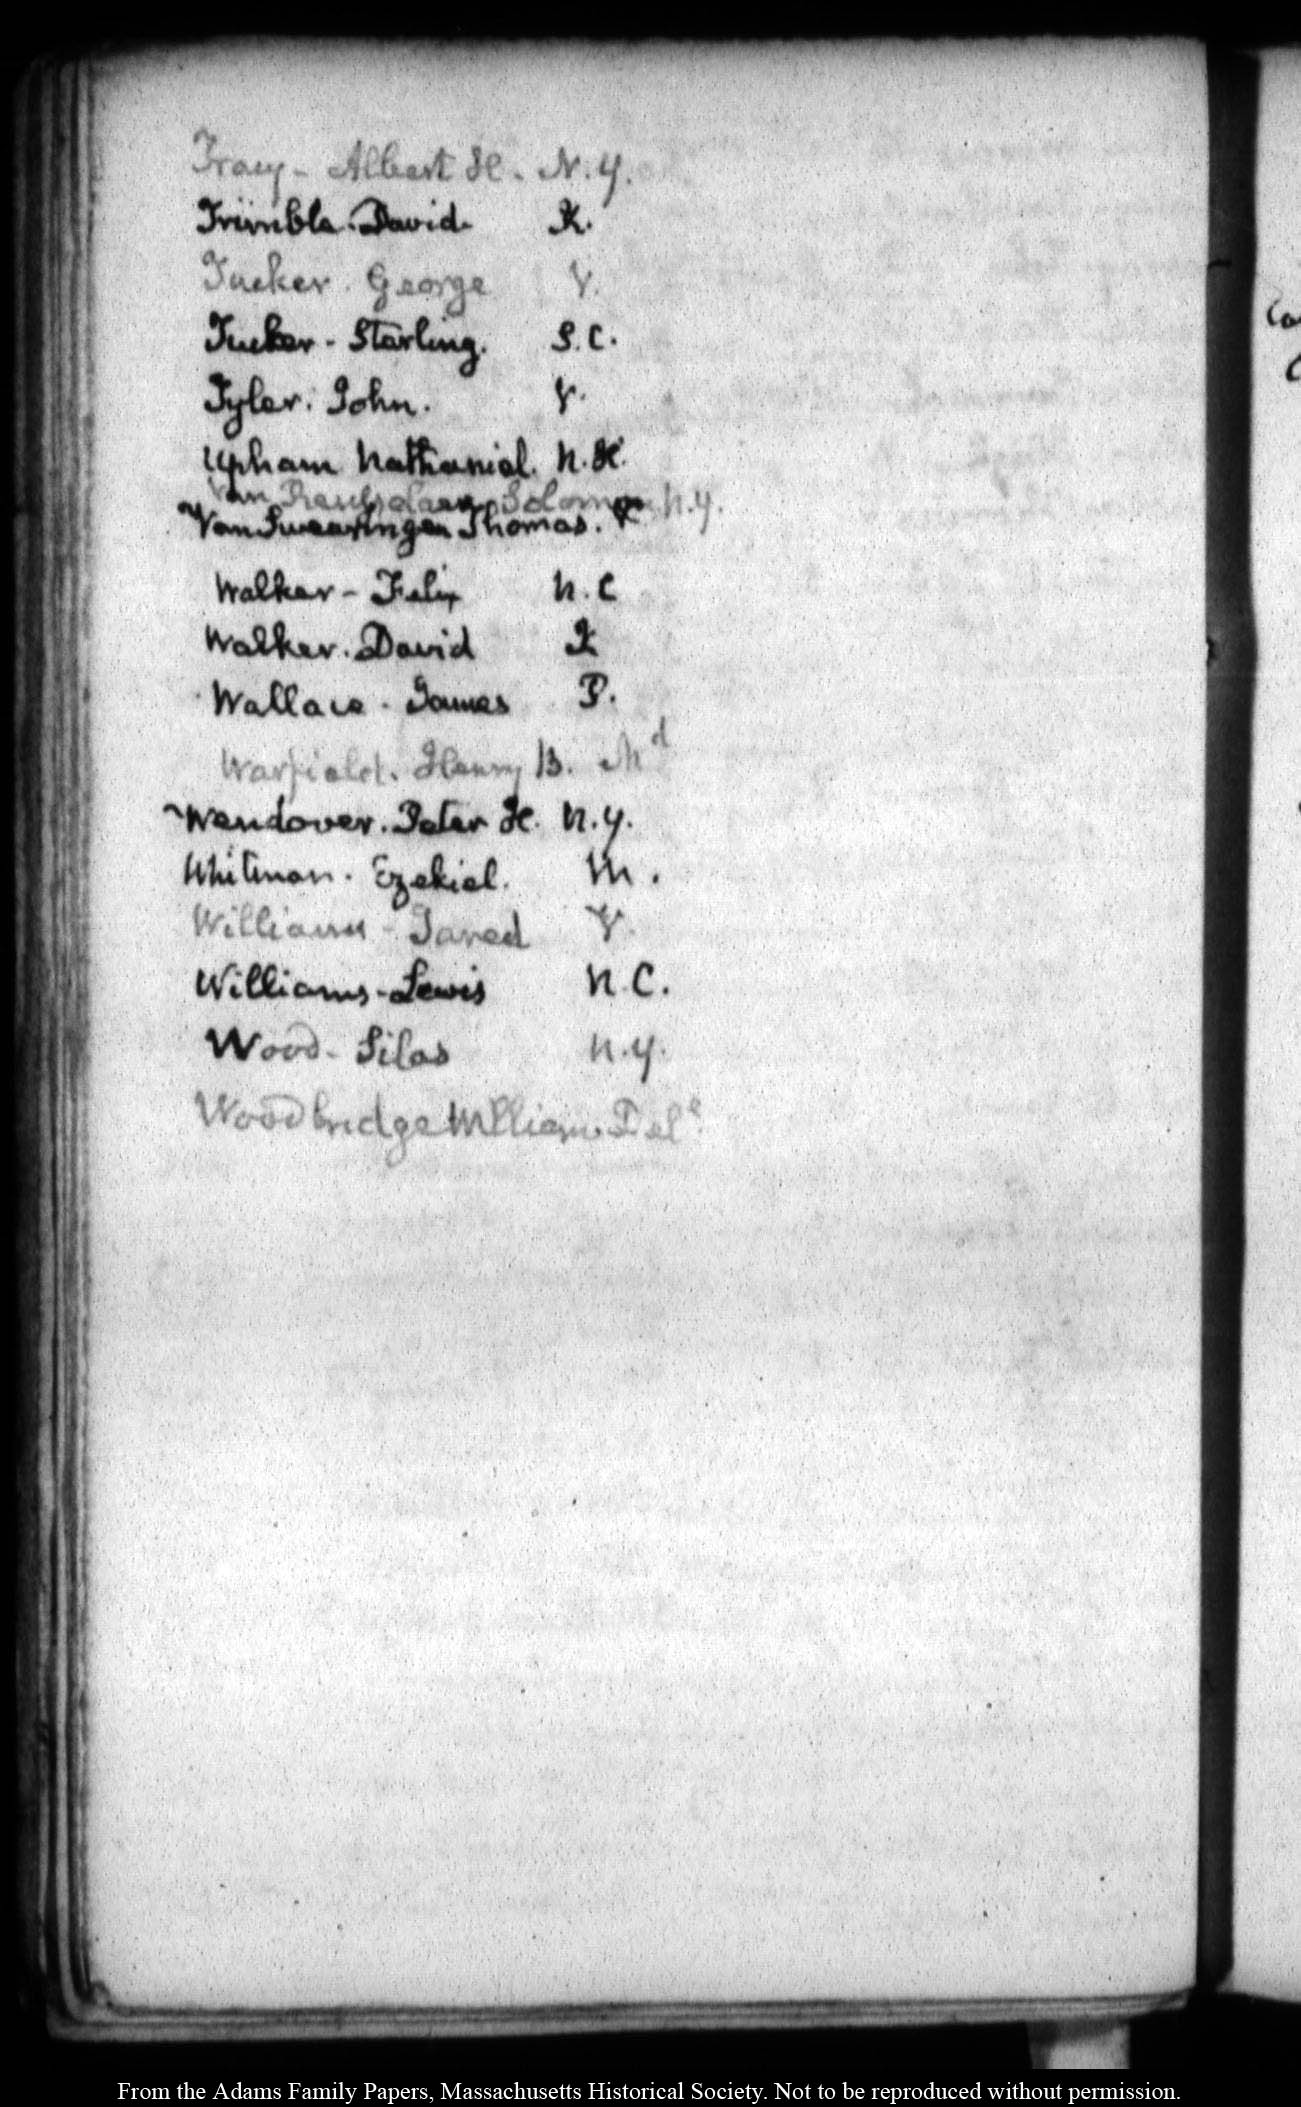 Tracy - Albert H. N.Y.
Trimble. David. K.
Tucker. George V.
Tucker - Starling. S.C.
Tyler. John. V.
Upham Nathaniel. N.H.
Van Rensselaer Solomon N.Y.
Van Swearingen Thomas. V
Walker - Felix N.C
Walker. David K
Wallace - James P.
Warfield. Henry B. Md
Wendover. Peter H. N.Y.
Whitman. Ezekiel. M.
Williams - Jared V.
Williams - Lewis N.C.
Wood - Silas N.Y.
Woodbridge William. Dele
From the Adams Family Papers, Massachusetts Historical Society. Not to be reproduced without permission.